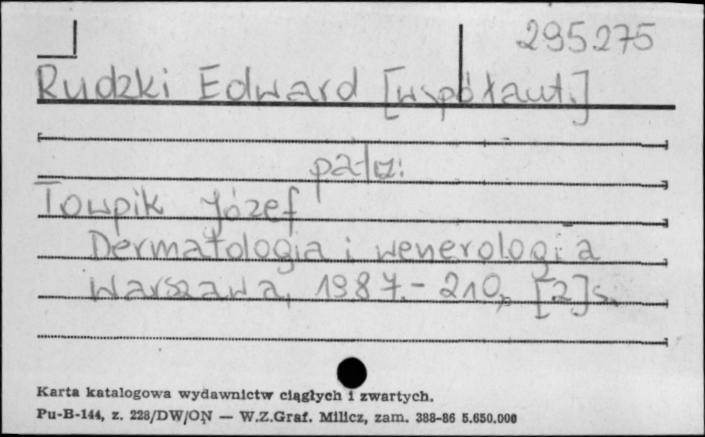 295275
Rudzki Edward [współaut.]
patrz:
Towpik Józef
Dermatologia i wenerologia
Warszawa, 1987.- 210, [2] s.
Karta katalogowa wydawnictw ciągłych i zwartych.
Pu-B-144, z. 228/DW/ON — W.Z.Graf. Milicz, zam. 388-86 5.650.000